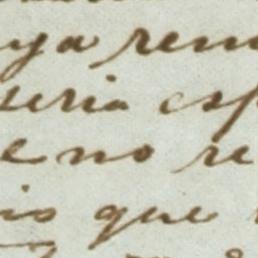 ya rem
seria esp
e no re
io que